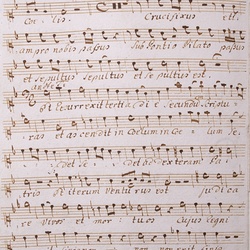 Crucifixus eti
am pro nobis passus Sub Pontio Pilato passus
et sepultus sepultus et sepultus est.
et Resurrexit tertia Di e Secundum
ras et ascendit in Coelum in Coe lum Se
det Se det ad exteram Pa
tris et iterum Venturus est judica
re Vivos et mortuos Cujus Regni
non non erit